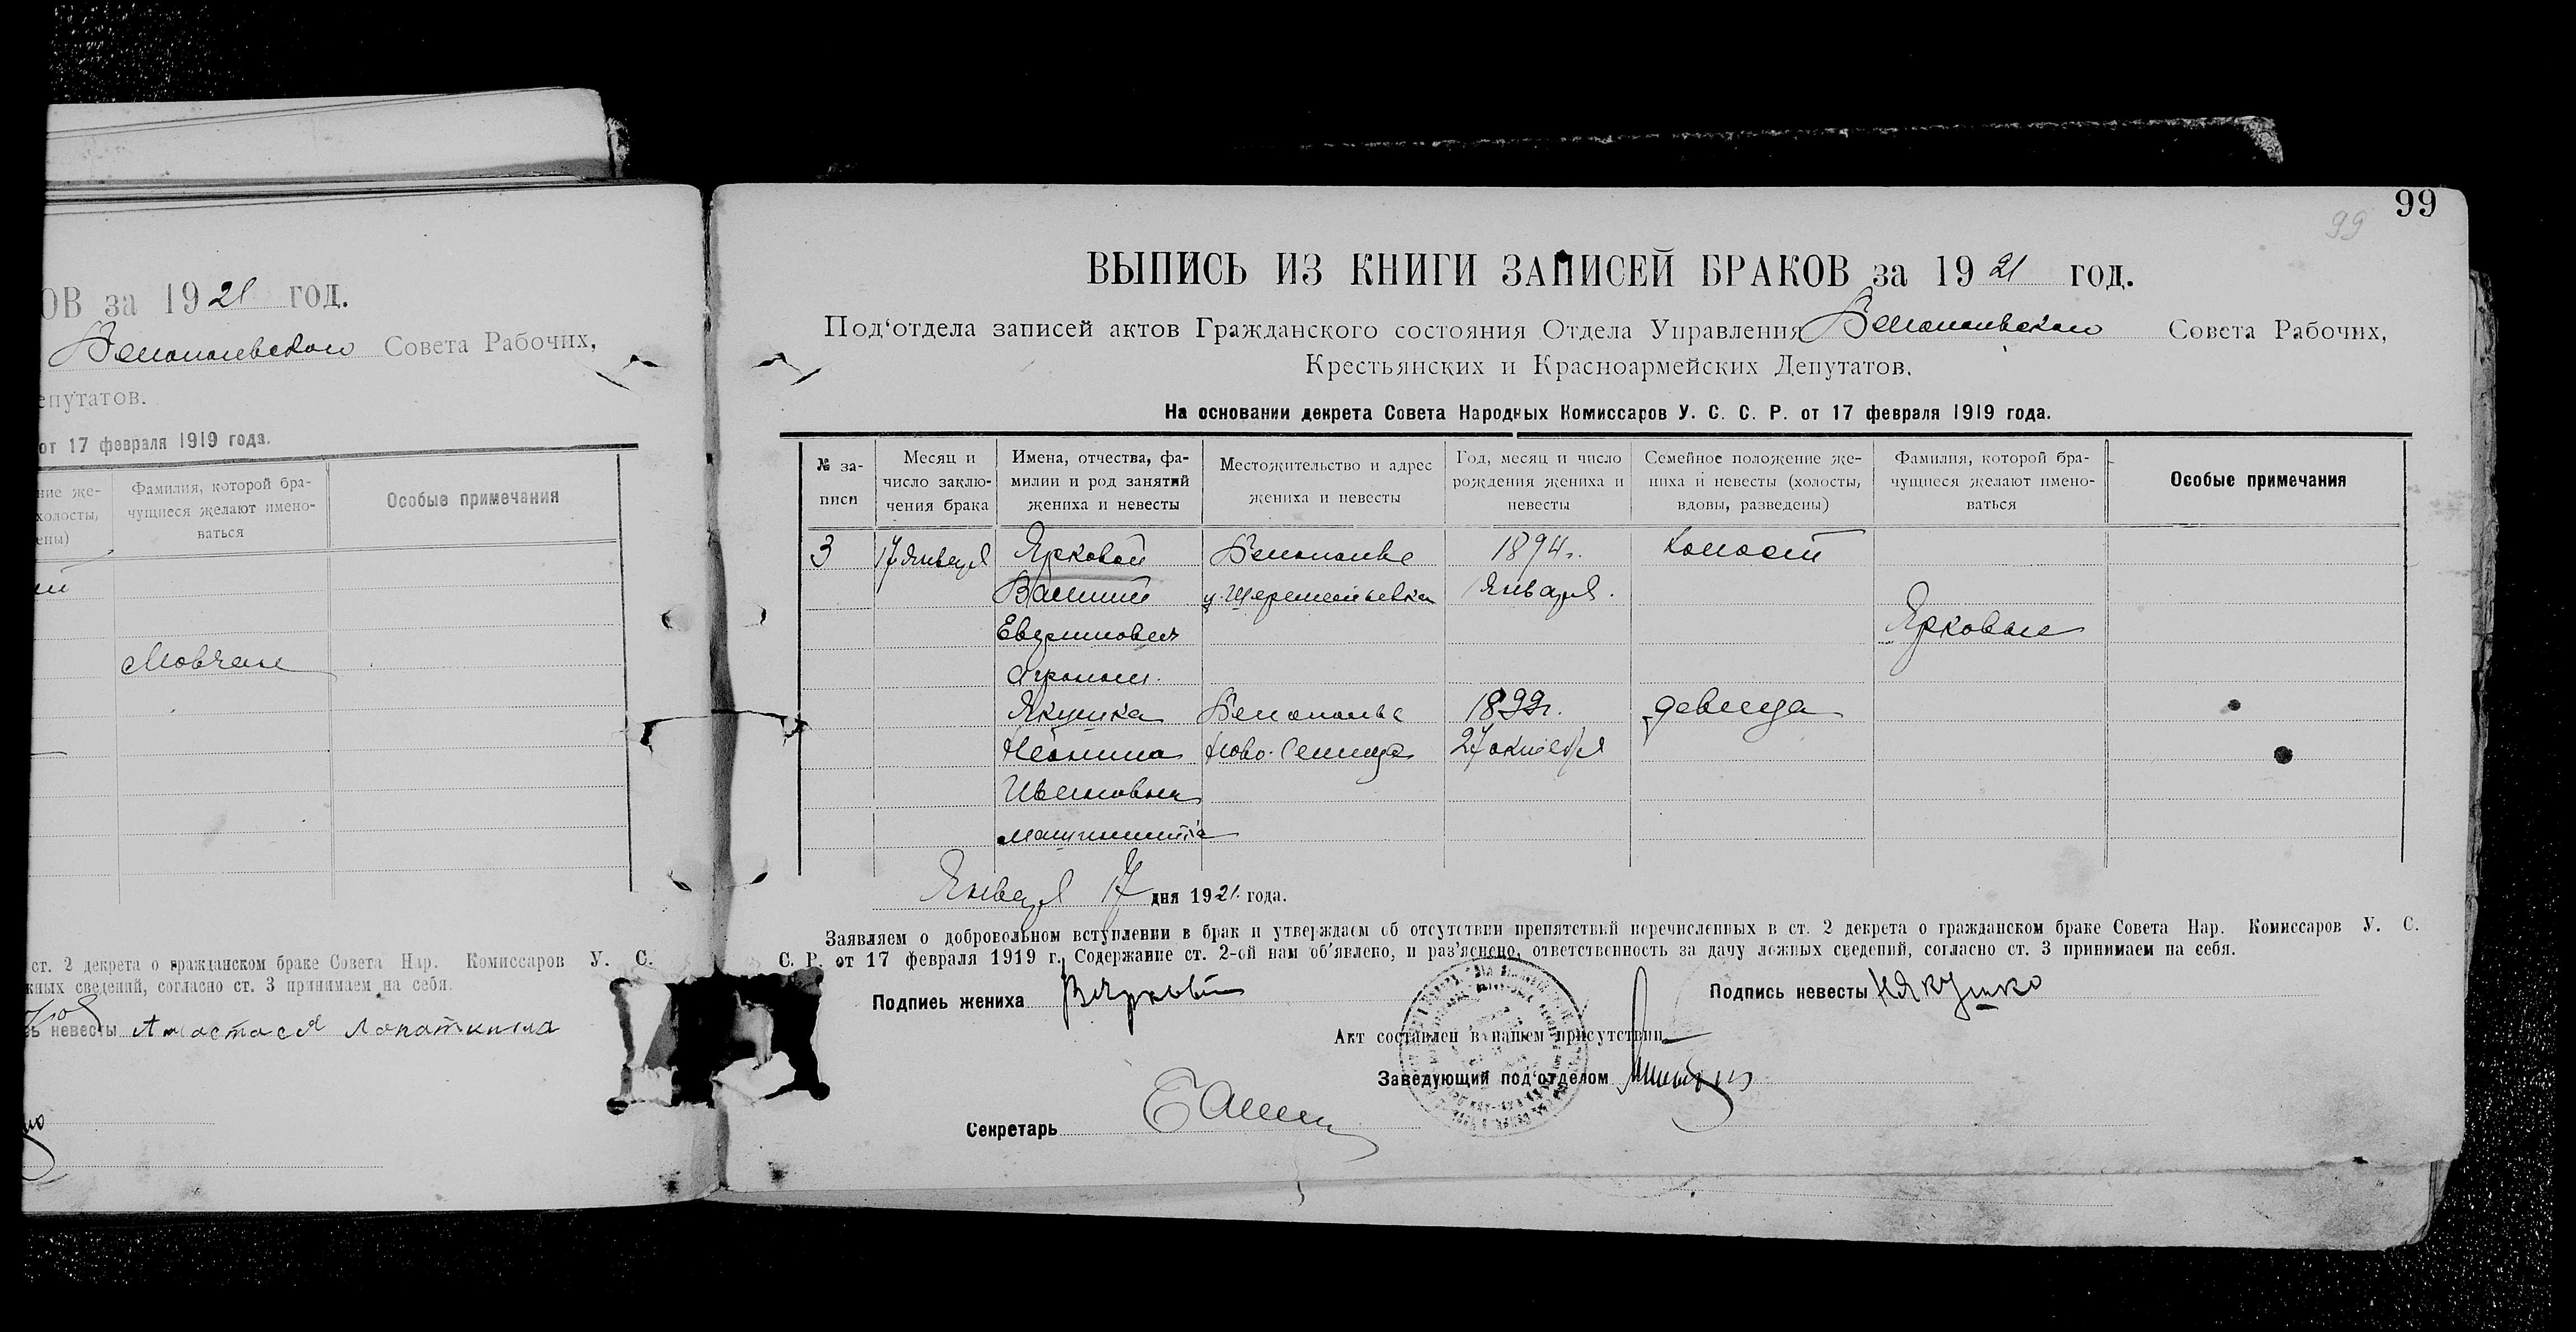 ОВ за 1921 год.
Белопольского Совета Рабочих,
епутатов.
от 17 февраля 1919 года.
ние же-
холосты,
ены)
Фамилия, которой бра-
чущиеся желают имено-
ваться
Особые примечания
Мовчан
ст. 2 декрета о гражданском браке Совета Нар. Комиссаров У. С.
жных сведений, согласно ст. 3 принимаем на себя.
ь невесты Анастасія Лопаткина
99
99
ВЫПИСЬ ИЗ КНИГИ ЗАПИСЕЙ БРАКОВ за 1921 год.
Под‘отдела записей актов Гражданского состояния Отдела Управления Белопольского Совета Рабочих,
Крестьянских и Красноармейских Депутатов.
На основании декрета Совета Народных Комиссаров У. С. С. Р. от 17 февраля 1919 года.
№ за-
писи
Месяц и
число заклю-
чения брака
Имена, отчества, фа-
милии и род занятий
жениха и невесты
Местожительство и адрес
жениха и невесты
Год, месяц и число
рождения жениха и
невесты
Семейное положение же-
ниха и невесты (холосты,
вдовы, разведены)
Фамилия, которой бра-
чущиеся желают имено-
ваться
Особые примечания
3 17 Января Ярковой Белополье 1894г. холост
Василий Января.
Ярковые
Агроном.
Якушка Белополье 1899г. девица
Неонила Ново-Сенища 27 октября
Ивановна
машинистка
Января 17 дня 1921 года.
Заявляем о добровольном вступлении в брак и утверждаем об отсутствии препятствий перечисленных в ст. 2 декрета о гражданском браке Совета Нар. Комиссаров У. С.
С. Р. от 17 февраля 1919 г. Содержание ст. 2-ой нам об‘явлено, и раз‘яснено, ответственность за дачу ложных сведений, согласно ст. 3 принимаем на себя.
Подпись жениха ВЯрковой
Подпись невесты НЯкушко
Акт составлен в нашем присутствии
Заведующий под‘отделом
Секретарь